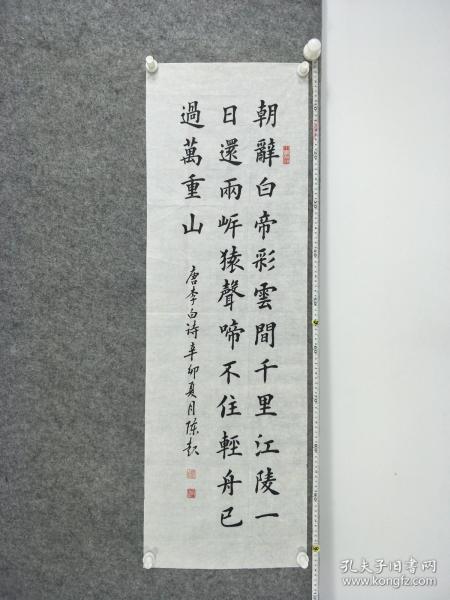 朝辭白帝彩雲間千里江陵一
日還兩岍猿聲啼不住輕舟已
過萬重山
唐李白诗辛卯夏月陈
孔夫子旧书网
www.kongfz.com